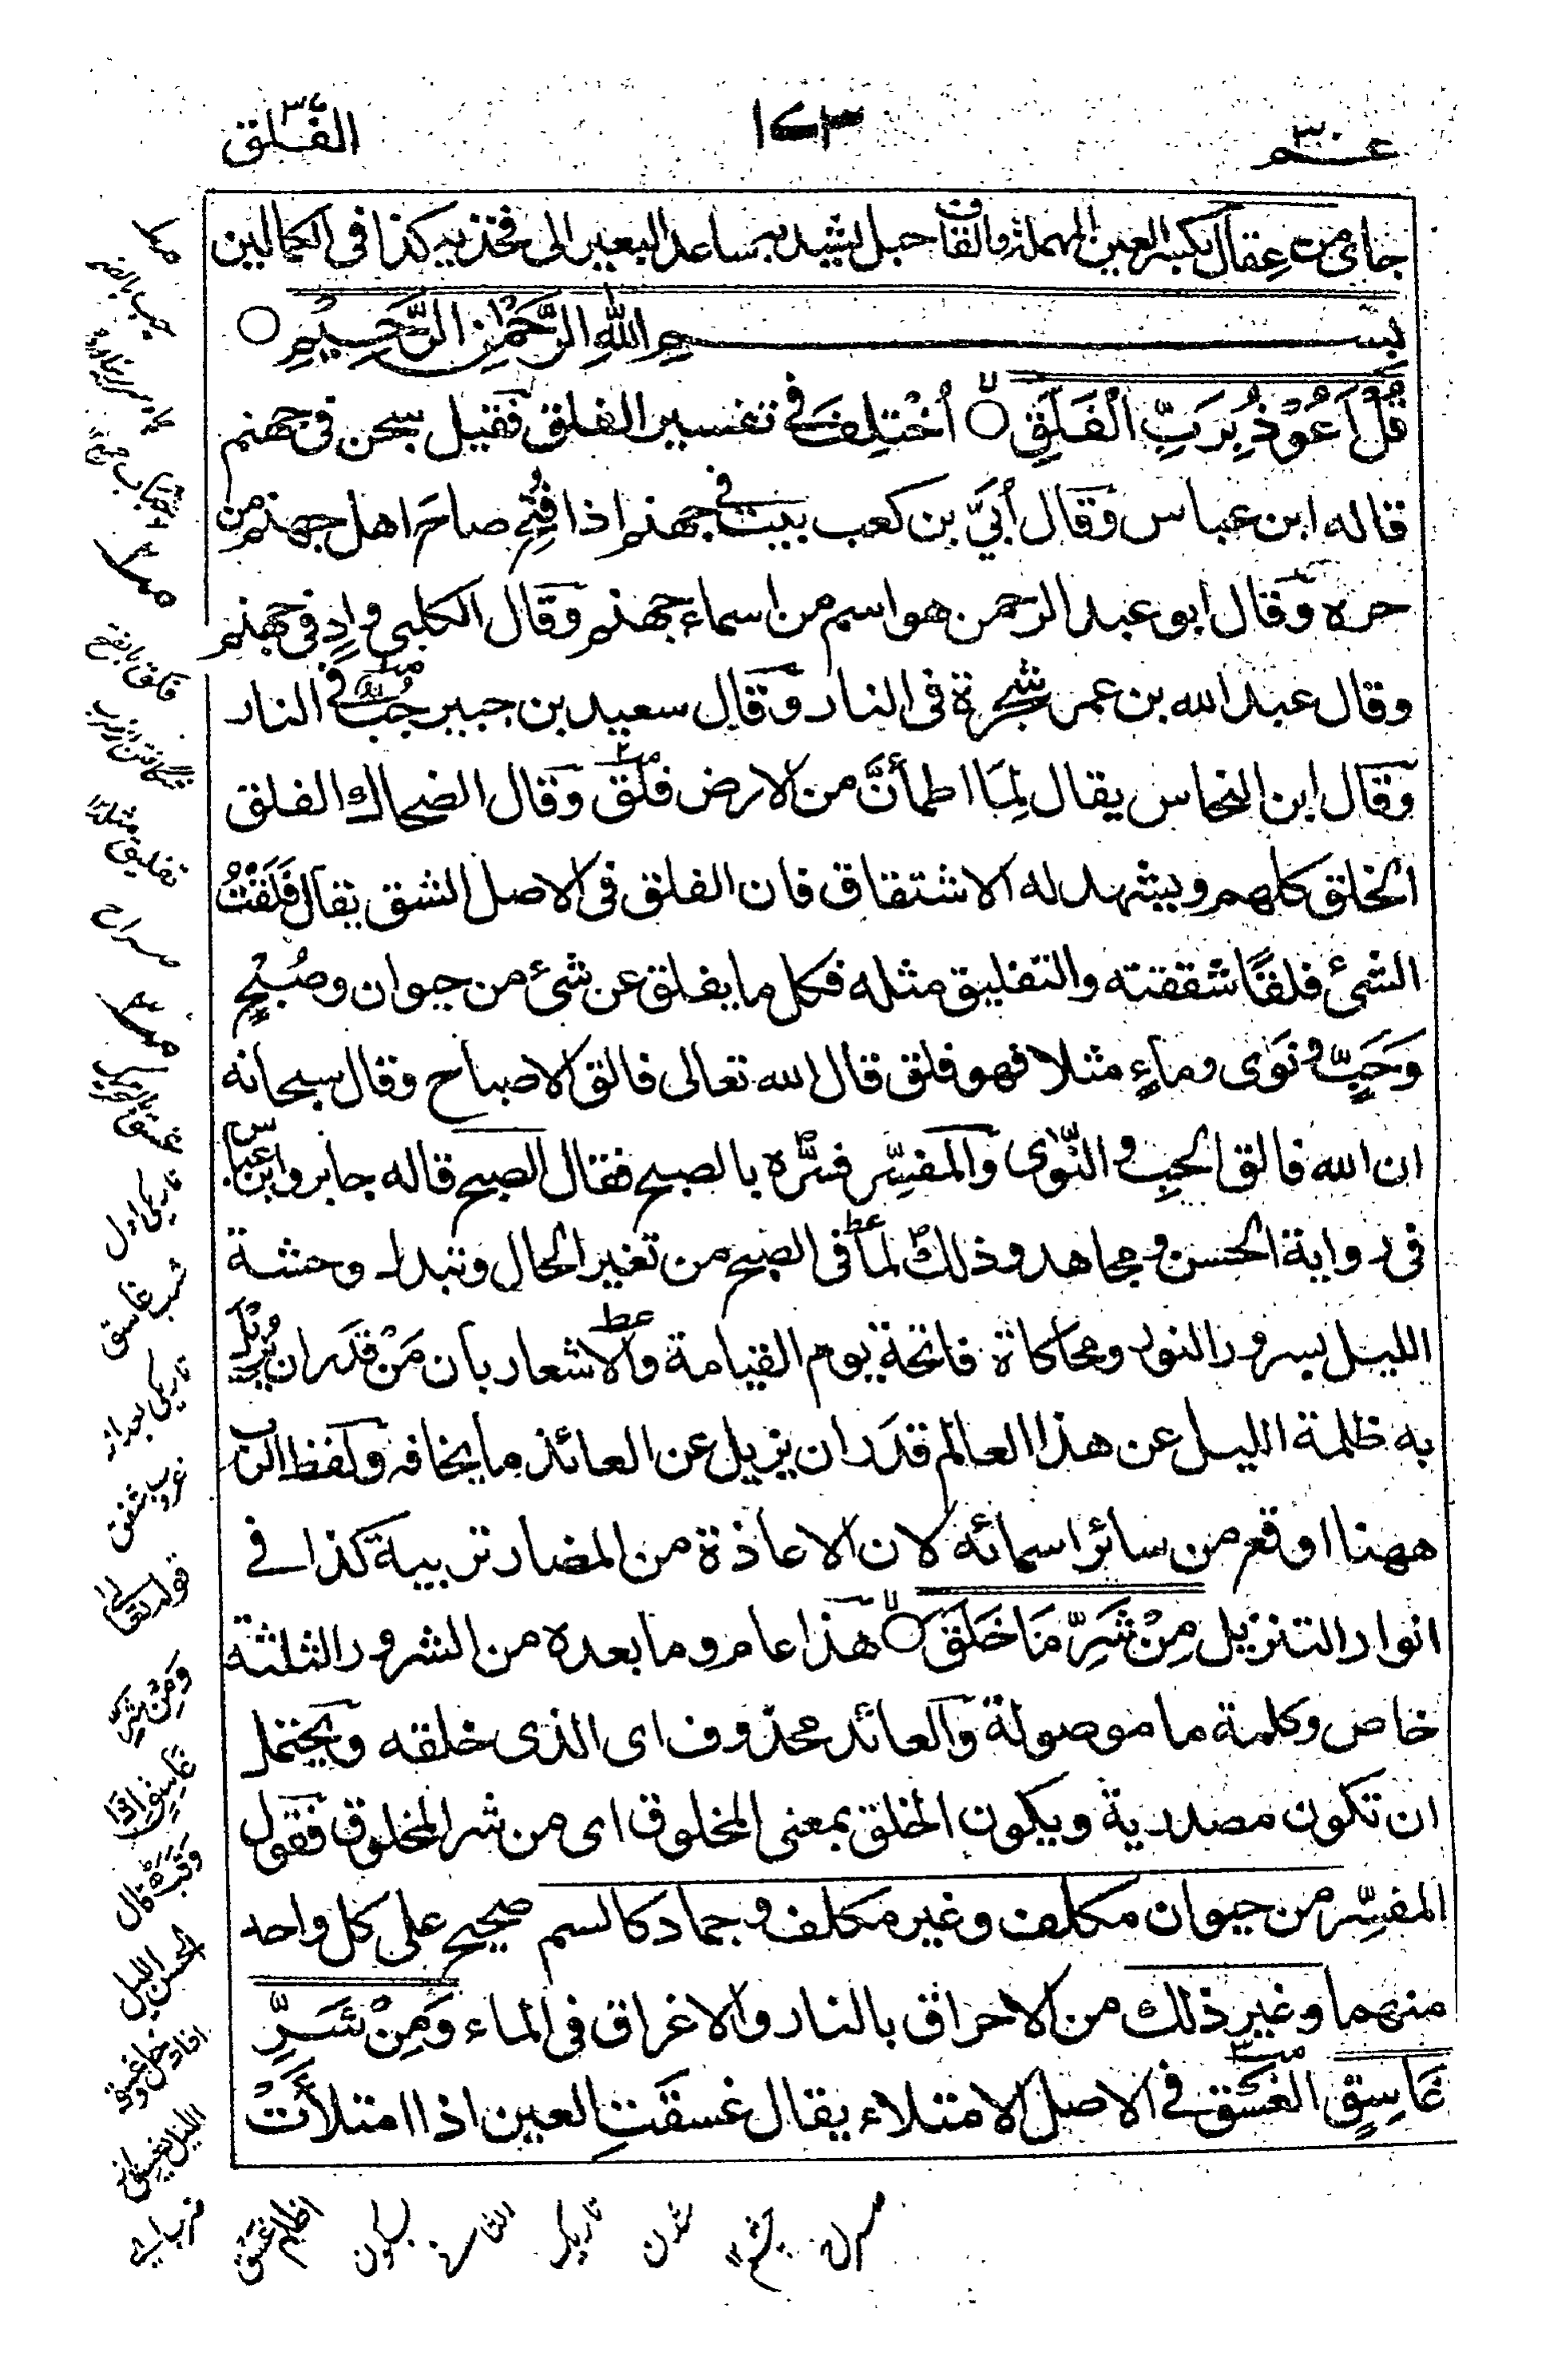 عم ٣٠
١٧٣
الفلق
جاى من عِقال بكسر العين المهملة والقاف حبل يشيد به ساعد البعير الى فخذيه كذا فى الكمالين
بسم اللهِ الرَّحْمٰنِ الرَّحِيْمِ ○
قُلْ اَعُوْذُ بِرَبِّ الْفَلَقِ ○ اُخْتِلِفَ فى تفسير الفلق فقيل سجن فى جهنم
قاله ابن عباس وقال اُبَيّ بن كعب بيت فى جهنم اذا فُتِح صاحَ اهل جهنم من
حره وقال ابو عبد الرحمن هو اسم من اسماء جهنم وقال الكلبى وادٍ فى جهنم
وقال عبد الله بن عمر شجرة فى النار وقال سعيد بن جبير جُبّ فى النار
وقال ابن النحاس يقال لِمَا اطمأنَّ من الارض فلق وقال الضحاك الفلق
الخلق كلهم ويشهد له الاشتقاق فان الفلق فى الاصل الشق يقال فَلَقْتُ
الشئ فلقًا شققته والتفليق مثله فكل ما يفلق عن شئ من حيوان وصُبْحٍ
وَحَبٍّ ونَوٰى وماءٍ مثلا فهو فلق قال الله تعالى فالق الاصباح وقال سبحانه
ان الله فالق الحبِ و النّوٰى والمفسِّر فسَّره بالصبح فقال الصبح قاله جابر وابن عباس
فى رواية الحسن و مجاهد وذلك لما فى الصبح من تغير الحال وتبدل وحشة
الليل بسرور النور ومحاكاة فاتحة يوم القيامة والاشعار بان مَنْ قدَر ان يُزِيْلَ
به ظلمة الليل عن هذا العالم قدَر ان يزيل عن العائذ ما يخافه ولفظ الرب
ههنا اوقع من سائر اسمائه لان الاعاذة من المضار تربية كذا فى
انوار التنزيل مِنْ شَرِّ مَا خَلَقَ ○ هذا عام وما بعده من الشرور الثلثة
خاص وكلمة ما موصولة والعائد محذوف اى الذى خلقه ويحتمل
ان تكون مصدرية ويكون الخلق بمعنى المخلوق اى من شر المخلوق فقول
المفسِّر من حيوان مكلف وغير مكلف وجماد كالسم صحيح على كل واحد
منهما وغير ذلك من الاحراق بالنار والاغراق فى الماء وَمِنْ شَرِّ
غَاسِقٍ الغسق فى الاصل الامتلاء يقال غسقَتِ العين اذا امتلأَتْ
فلق بالفتح
تفليق مثله
صراح
شب غاسق
غروب شفق
قوله تعالى
وَمِنْ شَرِّ
غَاسِقٍ اِذَا
وَقَبَ قال
الحسن الليل
اذا دخل وغسق
الليل
اظلم غسق